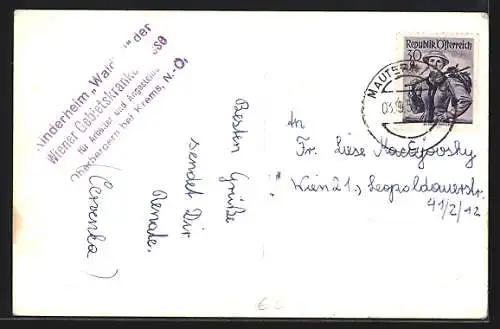 Kinderheim „Wald der
Wiener Gebietskranken
für Arbeiter und Angestellte
Oberbergern bei Krems, N.-Ö.
Besten Grüße
sendet Dir
Renate.
(Cervenka)
Republik Österreich
30
MAUTERN
An
Fr. Liese Matejovsky
Wien 21., Leopoldauerstr.
41/2/12